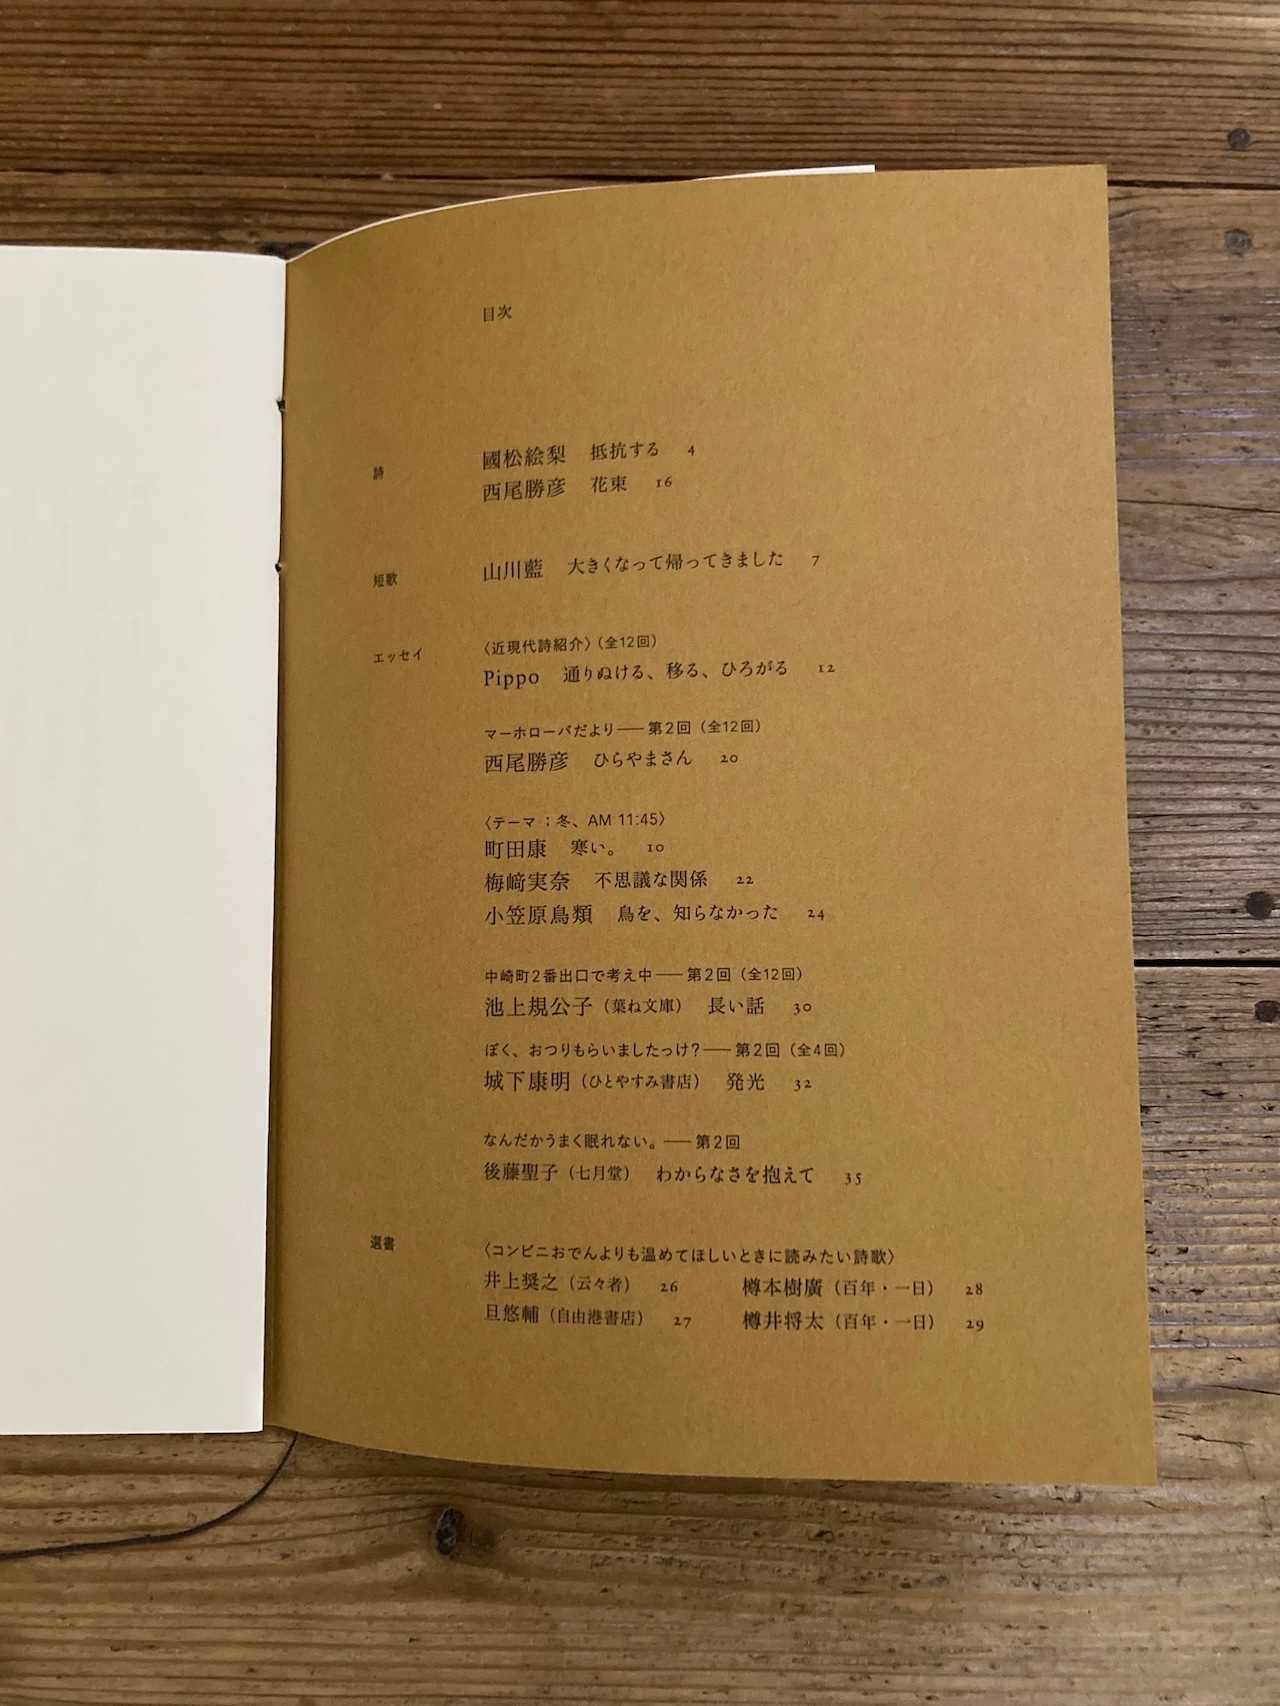 目次
詩
國松絵梨 抵抗する 4
西尾勝彦 花束 16
短歌
山川藍 大きくなって帰ってきました 7
エッセイ
〈近現代詩紹介〉（全12回）
Pippo 通りぬける、移る、ひろがる 12
マーホローバだより──第2回（全12回）
西尾勝彦 ひらやまさん 20
〈テーマ：冬、AM 11:45〉
町田康 寒い。 10
梅﨑実奈 不思議な関係 22
小笠原鳥類 鳥を、知らなかった 24
中崎町2番出口で考え中──第2回（全12回）
池上規公子（葉ね文庫） 長い話 30
ぼく、おつりもらいましたっけ？──第2回（全4回）
城下康明（ひとやすみ書店） 発光 32
なんだかうまく眠れない。──第2回
後藤聖子（七月堂） わからなさを抱えて 35
選書
〈コンビニおでんよりも温めてほしいときに読みたい詩歌〉
井上奨之（云々者） 26 樽本樹廣（百年・一日） 28
旦悠輔（自由港書店） 27 樽井将太（百年・一日） 29